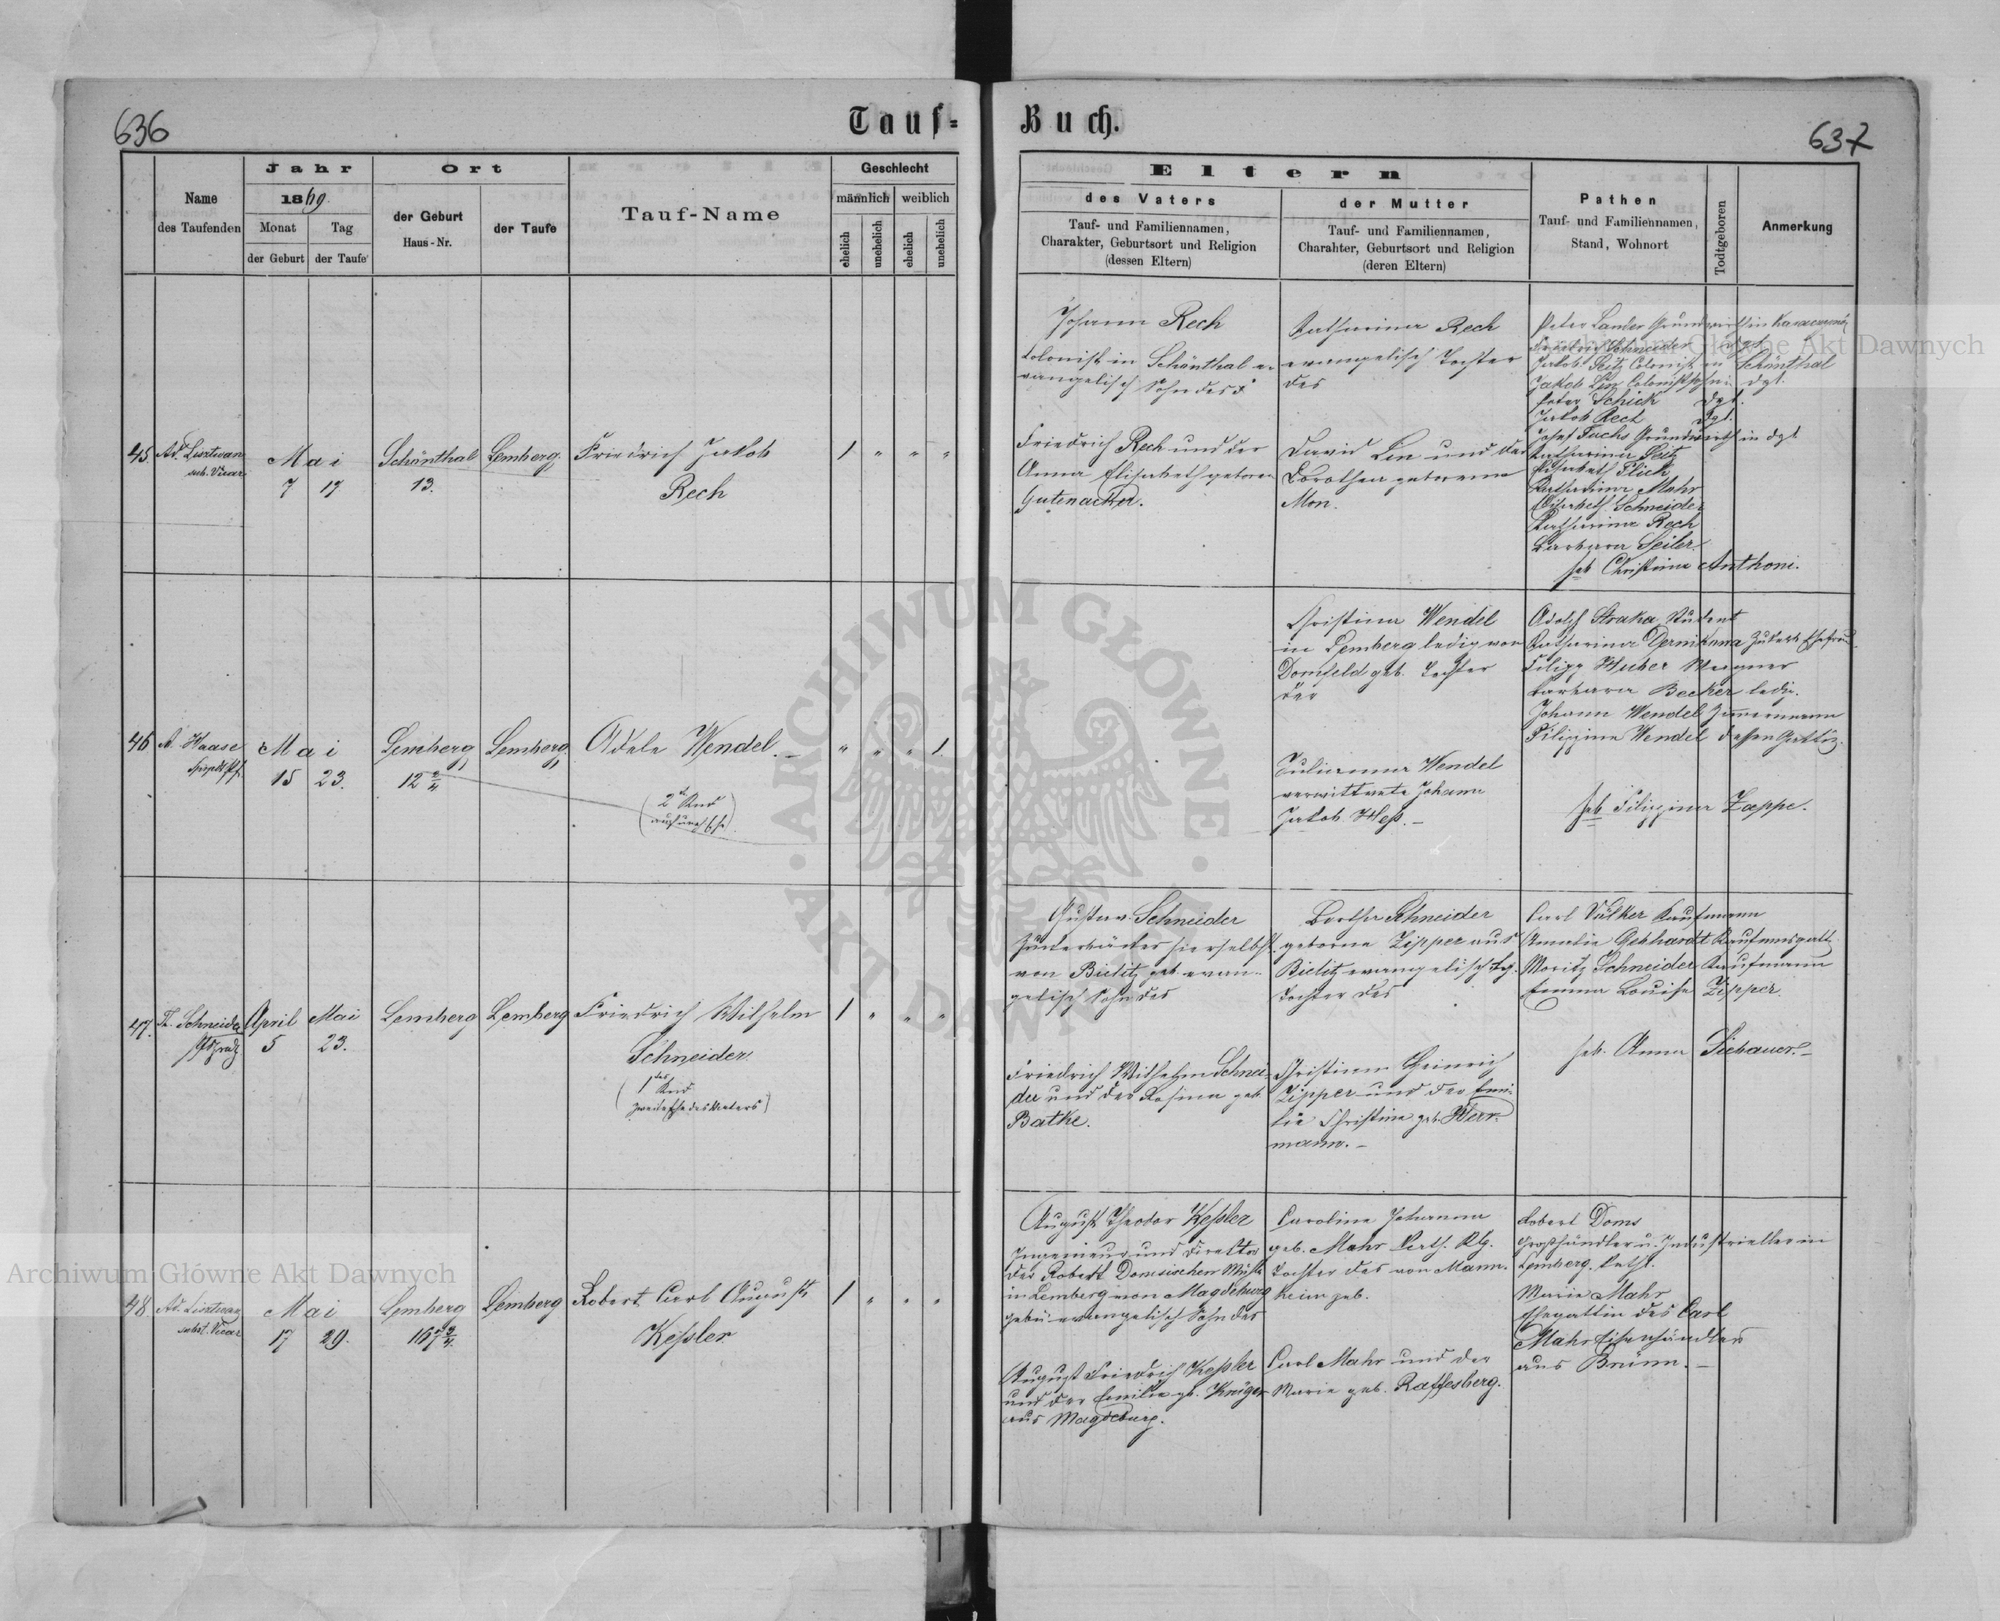 636
Tauf-
Buch.
637
Name
des Taufenden
Jahr
1869.
Monat
Tag
der Geburt
der Taufe
Ort
der Geburt
Haus-Nr.
der Taufe
Tauf-Name
Geschlecht
männlich
weiblich
ehelich
unehelich
ehelich
unehelich
Eltern
des Vaters
Tauf- und Familiennamen,
Charakter, Geburtsort und Religion
(dessen Eltern)
der Mutter
Tauf- und Familiennamen,
Charahter, Geburtsort und Religion
(deren Eltern)
Pathen
Tauf- und Familiennamen,
Stand, Wohnort
Todtgeboren
Anmerkung
45.
Mai
7 17
Schönthal
13.
Lemberg
Friedrich Jakob
Rech
1 " " "
Johann Rech
Colonist in Schönthal e-
vangelisch Sohn des
Friedrich Rech und der
Anna Elisabeth geborne
Gutenacker.
Katharina Rech
evangelisch Tochter
des
David Lin und der
Dorothea geborene
Mon.
Peter Lanter Grundwirth in
Friedrich Schneider dgt.
Jakob Seitz Colonist in Schönthal
Jakob Lin dgt.
Peter Schick dgt.
Jakob Rech dgt.
Josef Fuchs Grundwirth in dgt
Katharina Seitz
Elisabeth Flick
Katharina Mohr
Elisabeth Schneider
Katharina Rech
Barbara Seiler
heb Christina Anthoni.
46
A. Haase
Mai
15 23.
Lemberg
12 2/4
Lemberg
Adele Wendel.
(2tes Kind
außer Ehe)
" " " 1.
Christina Wendel
in Lemberg ledig von
Dornfeld geb. Tochter
der
Julianna Wendel
verwittwete Johann
Jakob Heß.
Adolf Straka Student
Katharina Ehefrau
Filipp Huber Wagner
Barbara Becker ledig.
Johann Wendel Zimmermann
Filippina Wendel dessen Gattin.
heb Filippina Zappe.
47.
Th. Schneider
April Mai
5 23.
Lemberg
Lemberg
Friedrich Wilhelm
Schneider
(1tes Kind
zweite Ehe des Vaters)
1 " " "
Gustav Schneider
Zuckerbäcker hierselbst
von Bielitz geb. evan-
gelisch Sohn des
Friedrich Wilhelm Schnei-
der und der Rosina geb.
Bathe.
Bertha Schneider
geborne Zipper aus
Bielitz evangelisch
Tochter des
Christian Heinrich
Zipper und der Emi-
lie Christine geb. Herr-
mann.
Carl Völker Kaufmann
Amalie Gebhardt Kaufmnsgatt.
Moritz Schneider Kaufmann
Emma Louise Zipper
heb. Anna
48.
Mai
17 29.
Lemberg
167 2/4.
Lemberg
Robert Carl August
Keßler
1 " " "
August Theodor Keßler
Ingenieur und Direktor
der Robert Domsischen Mühle
in Lemberg von Magdeburg
gebü. evangelisch Sohn des
August Friedrich Keßler
und der Emilie gb. Krüger
aus Magdeburg.
Caroline Johanna
geb. Mahr Kath. Rlg.
Tochter des von Mann-
heim geb.
Carl Mahr und der
Marie geb. Raffesberg.
Robert Doms
Großhändler u. Industrieller in
Lemberg. Kath.
Marie Mahr
Ehegattin des Carl
Mahr Eisenhändler
aus Brünn.
Archiwum Główne Akt Dawnych
Archiwum Główne Akt Dawnych
ARCHIWUM GŁÓWNE AKT DAWNYCH